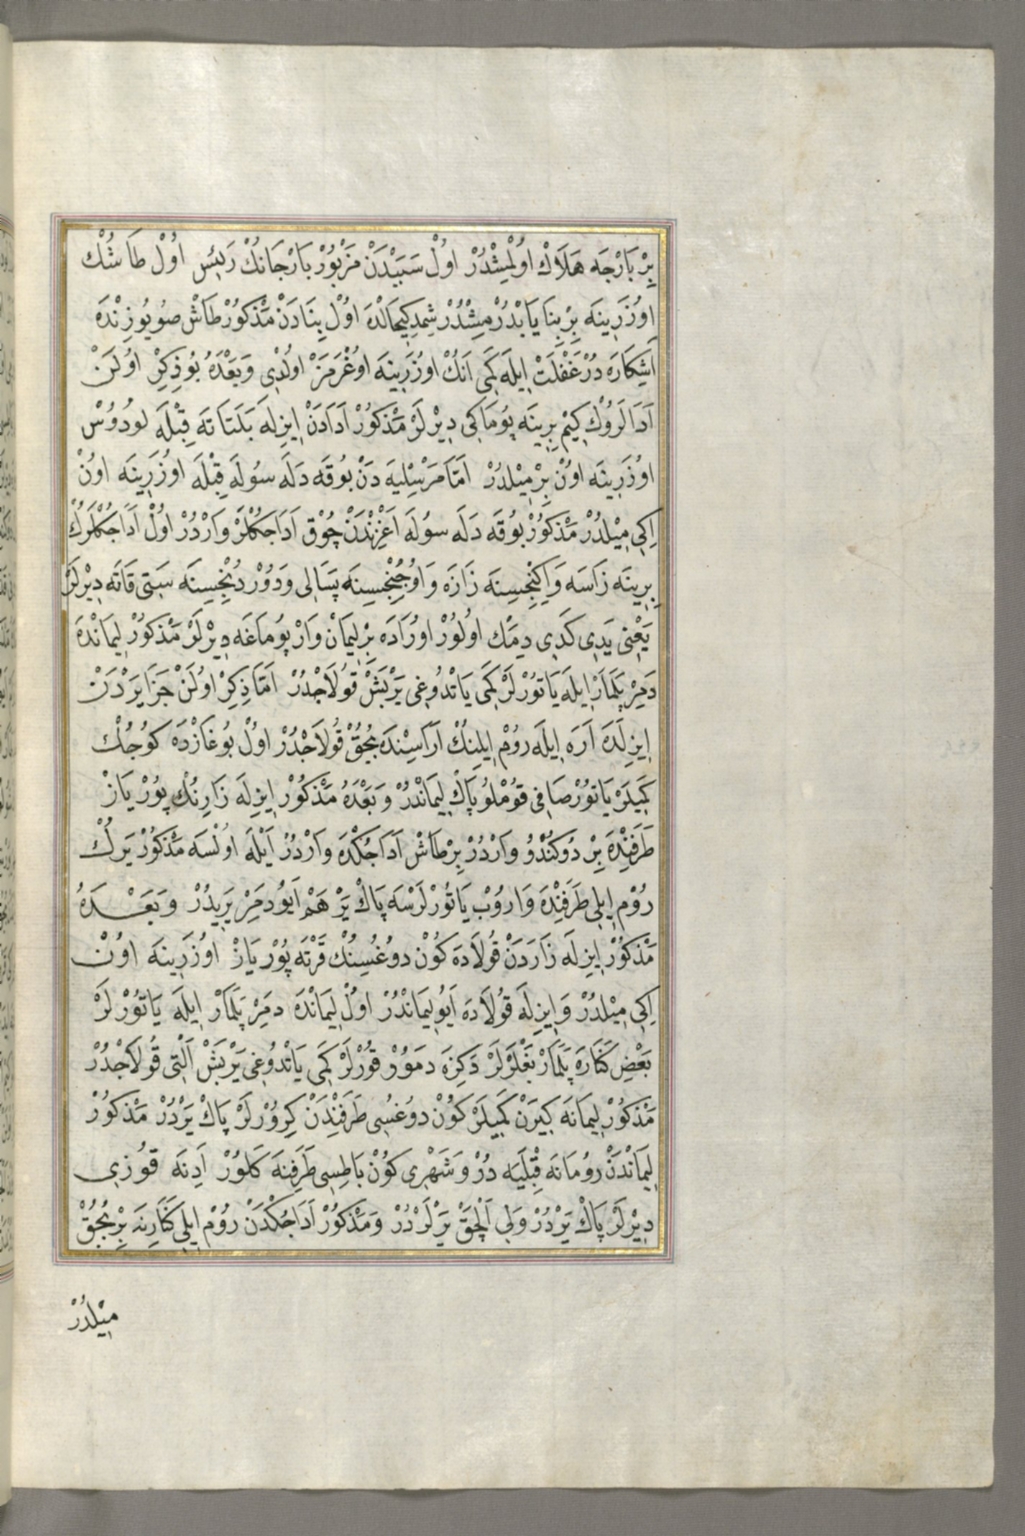 بِرْ بَارْجَه هَلَاكْ اوُلْمِشْدُرْ اوُلْ سَبَبْدَنْ مَزْبُورْ بَارْجَانُكْ رَئِسِ اوُلْ طَاشُكْ
اوُزَرِينَه بِرْ بِنَا يَابْدُرْمِشْدُرْ شِمْدِيكِيحَالْدَه اوُلْ بِنَادَنْ مَذْكُورْ طَاشْ صُويُوزِنْدَه
آشِكَارَه دُرْ غَفْلَتْ اِيلَه كَمِي اَنُكْ اوُزَرِينَه اوُغْرَمَزْ اوُلْدِي وَبَعْدَهُ بُوذِكِرْ اوُلَنْ
آدَالَرُوكْ كِيمْ بِرِينَه پُومَاكِي دِيرْلَرْ مَذْكُورْ آدَادَنْ اِيزِلَه بَلَتَاتَه قِبْلَه لودُوسْ
اوُزَرِينَه اوُنْ بِرْ مِيلْدُرْ اَمَّا مَرْسِلِيَه دَنْ بُوقَه دَلَه سوُلَه قِبْلَه اوُزَرِينَه اوُنْ
اِكِي مِيْلْدُرْ مَذْكُورْ بُوقَه دَلَه سوُلَه اَغْزِنْدَنْ چُوقْ آدَاجُكْلَرْ وَارْدُرْ اوُلْ آدَاجُكْلَرُكْ
بِرِينَه رَاسَه وَاِكِنْجِسِينَه زَارَه وَاوُجُنْجِسِينَه پَسَالِي وَدُورْدُنْجِسِينَه سَتِي قَاتَه دِيرْلَرْ
يَعْنِي يَدِي كَدِي دِمَكْ اوُلُورْ اوُرَادَه بِرْ لِيمَانْ وَارْ پُومَاغَه دِيرْلَرْ مَذْكُورْ لِيمَانْدَه
دَمِرْ پَلَمَارْ اِيلَه يَاتُورْلَرْ كَمِي يَاتْدُوغِي يَرْ بَشْ قُولَاجْدُرْ اَمَّا ذِكِرْ اوُلَنْ جَزَايِرْدَنْ
اِيزِلَدَه آرَه اِيلَه رُومْ اِيلِينُكْ آرَاسِنْدَه بُجُقْ قُولَاجْدُرْ اوُلْ بُوغَازْدَه كوُجُكْ
كَمِيلَرْ يَاتُورْ صَافِي قوُمْلُو پَاكْ لِيمَانْدُرْ وَبَعْدَهُ مَذْكُورْ اِيزِلَه زَارِنُكْ پُورْيَازْ
طَرَفِنْدَه بِرْ دُوكُنْدُو وَارْدُرْ بِرْ طَاشْ آدَاجُكْدَه وَارْدُرْ اَيْلَه اوُلْسَه مَذْكُورْ يَرُكْ
رُومْ اِيلِي طَرَفِنْدَه وَارُوبْ يَاتُورْلَرْسَه پَاكْ يَرْ هَمْ اَيُو دَمِرْ يَرِيدُرْ وَبَعْدَهُ
مَذْكُورْ اِيزِلَه زَارَدَنْ قُولَادَه كُونْ دوُغُسِنُكْ قَرْتَه پُورْيَازْ اوُزَرِينَه اوُنْ
اِكِي مِيْلْدُرْ وَاِيزِلَه قُولَادَه اَيُو لِيمَانْدُرْ اوُلْ لِيمَانْدَه دَمِرْ پَلَمَارْ اِيلَه يَاتُورْلَرْ
بَعْضِ كَنَارَه پَلَمَارْ بَغْلَرْلَرْ دَكِزَه دَمُورْ قُورْلَرْ كَمِي يَاتْدُوغِي يَرْ بَشْ اَلْتِي قُولَاجْدُرْ
مَذْكُورْ لِيمَانَه كِيرَنْ كَمِيلَرْ كُونْ دوُغُسِي طَرَفِنْدَنْ كِرُورْلَرْ پَاكْ يَرْدُرْ مَذْكُورْ
لِيمَانْدَنْ رُومَانَه قِبْلَيَه دُرْ وَشَهْرِي كُونْ بَاطِسِي طَرَفِنَه كَلُورْ آدِنَه قوُزِي
دِيرْلَرْ پَاكْ يَرْدُرْ وَلِي اَلْچَقْ يَرْلَرْدُرْ وَمَذْكُورْ آدَاجُكْدَنْ رُومْ اِيلِي كَنَارِينَه بِرْ بُجُقْ
مِيلْدُرْ